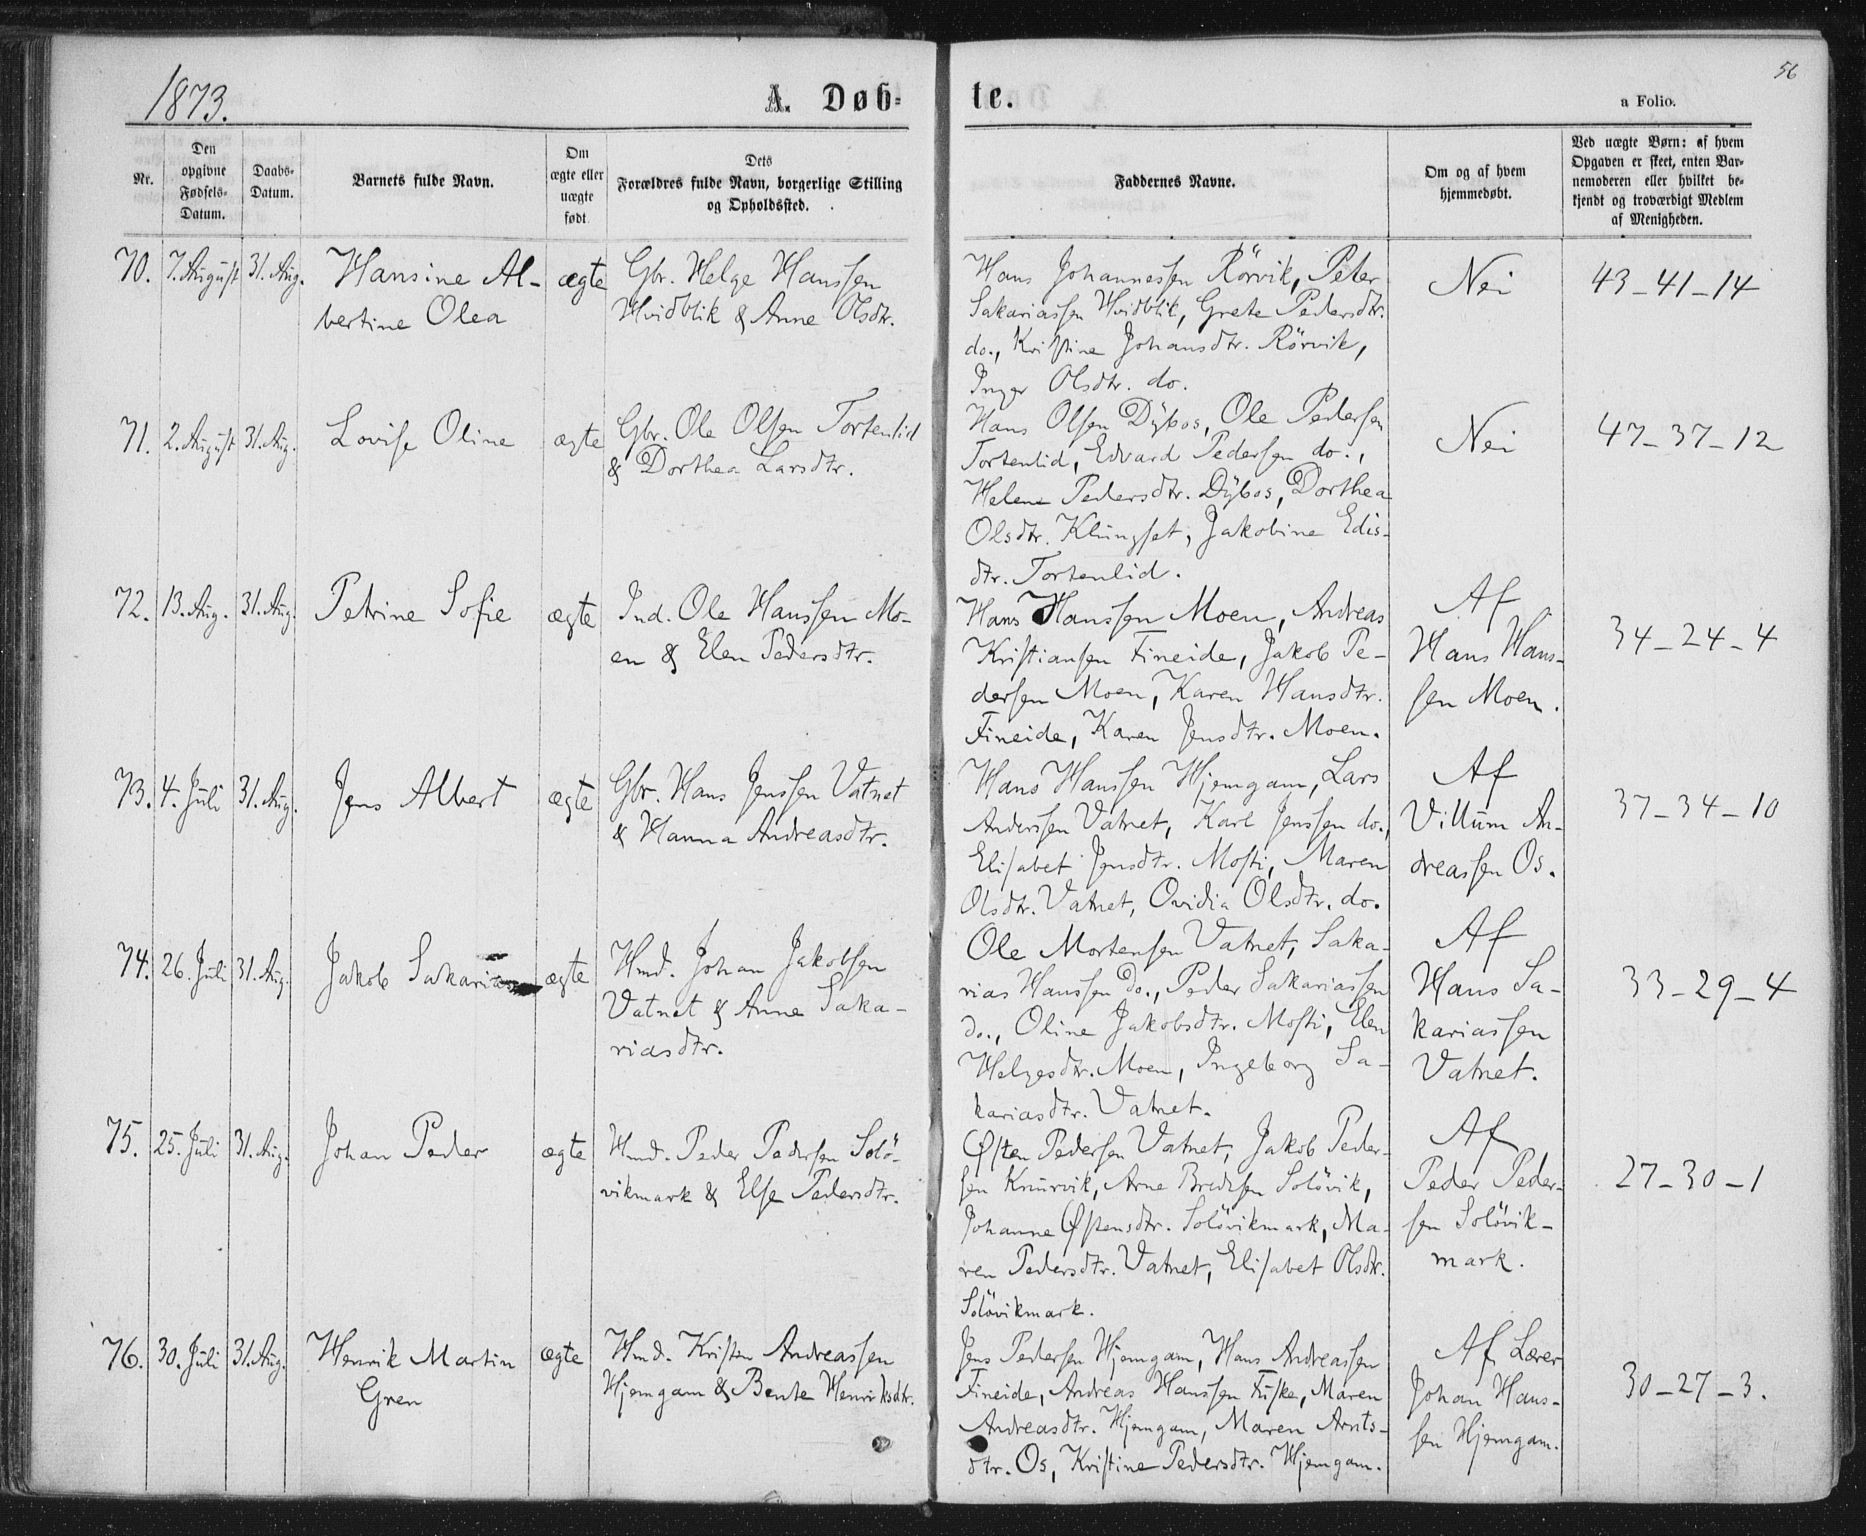 1873.
A. Døb-
te.
a Folio.
56
Nr.
Den
opgivne
Fødsels-
Datum.
Daabs-
Datum.
Barnets fulde Navn.
Om
ægte eller
uægte
født.
Dets
Forældres fulde Navn, borgerlige Stilling
og Opholdssted.
Faddernes Navne.
Om og af hvem
hjemmedøbt.
Ved uægte Børn: af hvem
Opgaven er skeet, enten Bar-
nemoderen eller hvilket be-
kjendt og troværdigt Medlem
af Menigheden.
70. 7. August 31. Aug.
Hansine Al-
bertine Olea
ægte
Gbr. Helge Hanssen
Hvidblik & Anne Olsdtr.
Hans Johannessen Rörvik, Peter
Sakariassen Hvidblik, Grete Pedersdtr.
do., Kristine Johansdtr. Rörvik,
Inger Olsdtr. do.
Nei
43-41-14
71. 2. August 31. Aug.
Lovise Oline
ægte
Gbr. Ole Olsen Tortenlid
& Dorthea Larsdtr.
Hans Olsen Dybos, Ole Pedersen
Tortenlid, Edvard Pedersen do.,
Helene Pedersdtr. Dybos, Dorthea
Olsdtr. Klungset, Jakobine Edis-
dtr. Tortenlid.
Nei
47-37-12
72. 13. Aug. 31. Aug.
Petrine Sofie
ægte
Ind. Ole Hanssen Mo-
en & Elen Pedersdtr.
Hans Hanssen Moen, Andreas
Kristiansen Fineide, Jakob Pe-
dersen Moen, Karen Hansdtr.
Fineide, Karen Jensdtr. Moen.
Af
Hans Hans-
sen Moen.
34-24-4
73. 4. Juli 31. Aug.
Jens Albert
ægte
Gbr. Hans Jenssen Vatnet
& Hanna Andreasdtr.
Hans Hanssen Hjemgam, Lars
Anderssen Vatnet, Karl Jenssen do.,
Elisabet Jensdtr. Mosti, Maren
Olsdtr. Vatnet, Ovidia Olsdtr. do.
Af
Villum An-
dreassen Os.
37-34-10
74. 26. Juli 31. Aug.
Jakob Sakarias
ægte
Hmd. Johan Jakobsen
Vatnet & Anne Saka-
riasdtr.
Ole Mortensen Vatnet, Saka-
rias Hanssen do., Peder Sakariassen
do., Oline Jakobsdtr. Mosti, Elen
Helgesdtr. Moen, Ingeborg Sa-
kariasdtr. Vatnet.
Af
Hans Sa-
kariassen
Vatnet.
33-29-4
75. 25. Juli 31. Aug.
Johan Peder
ægte
Hmd. Peder Pedersen Solö-
vikmark & Else Pedersdtr.
Østen Pedersen Vatnet, Jakob Peder-
sen Knurvik, Arne Bredesen Solövik,
Johanne Østensdtr. Solövikmark, Ma-
ren Pedersdtr. Vatnet, Elisabet Olsdtr.
Solövikmark.
Af
Peder Peder-
sen Solövik-
mark.
27-30-1
76. 30. Juli 31. Aug.
Henrik Martin
Gren
ægte
Hmd. Kristen Andreassen
Hjemgam & Bente Henriksdtr.
Jens Pedersen Hjemgam, Hans Andreassen
Fineide, Andreas Hanssen Fuske, Maren
Andreasdtr. Hjemgam, Maren Arnts-
dtr. Os, Kristine Pedersdtr. Hjemgam.
Af Lærer
Johan Hans-
sen Hjemgam.
30-27-3.